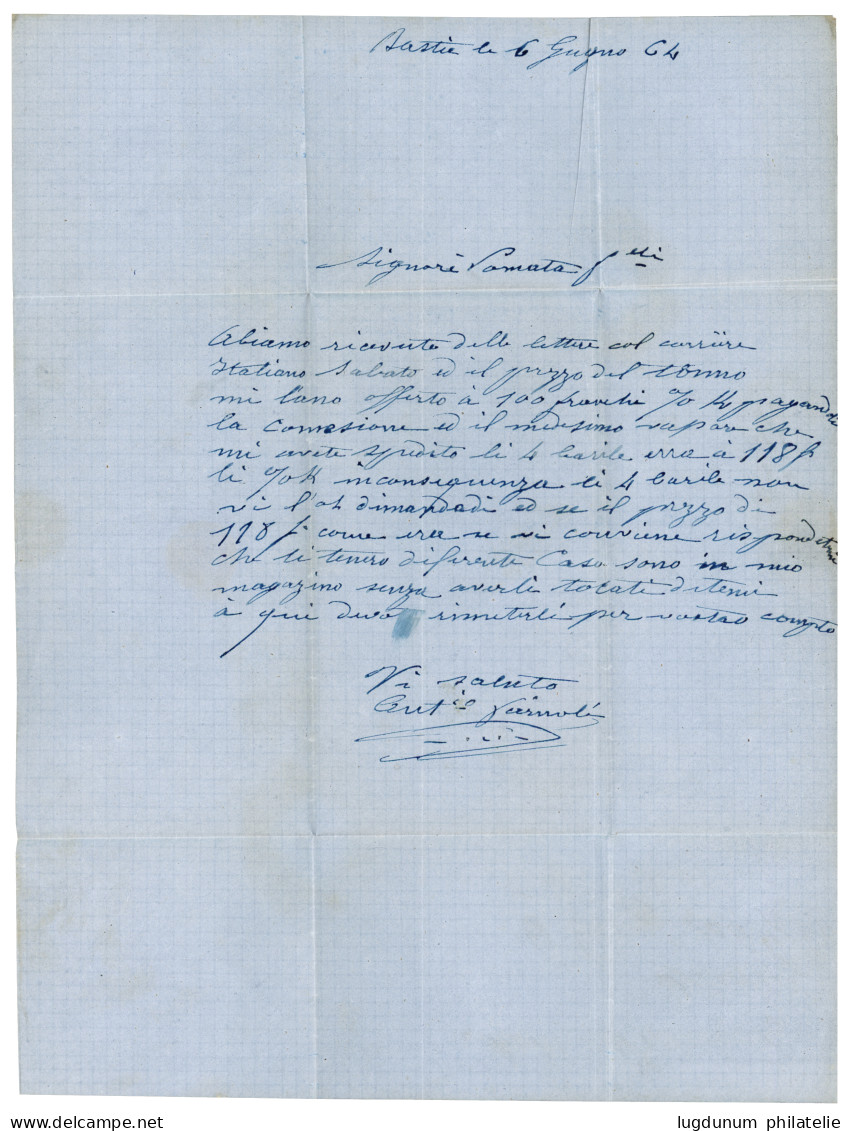 Bastia le 6 Giugno 64
Signori Pomata f.elli
Abiamo ricevuto delle lettere col corriire
Italiano Sabato ed il prezzo del tonno
mi l'ano offerto à 100 franchi % K pagando
la Comesione ed il medesimo vapore che
mi avete spedito li 4 barile erra à 118 f
li % K inconseguenza li 4 barile non
vi l'oh dimandadi ed se il prezzo di
118 f come era se vi conviene rispondetemi
che li tenero diferente Caso sono in mio
magazino senza averli tocati ditemi
à qui devo rimeterli per vostro compto
Vi saluto
lugdunum philatelie